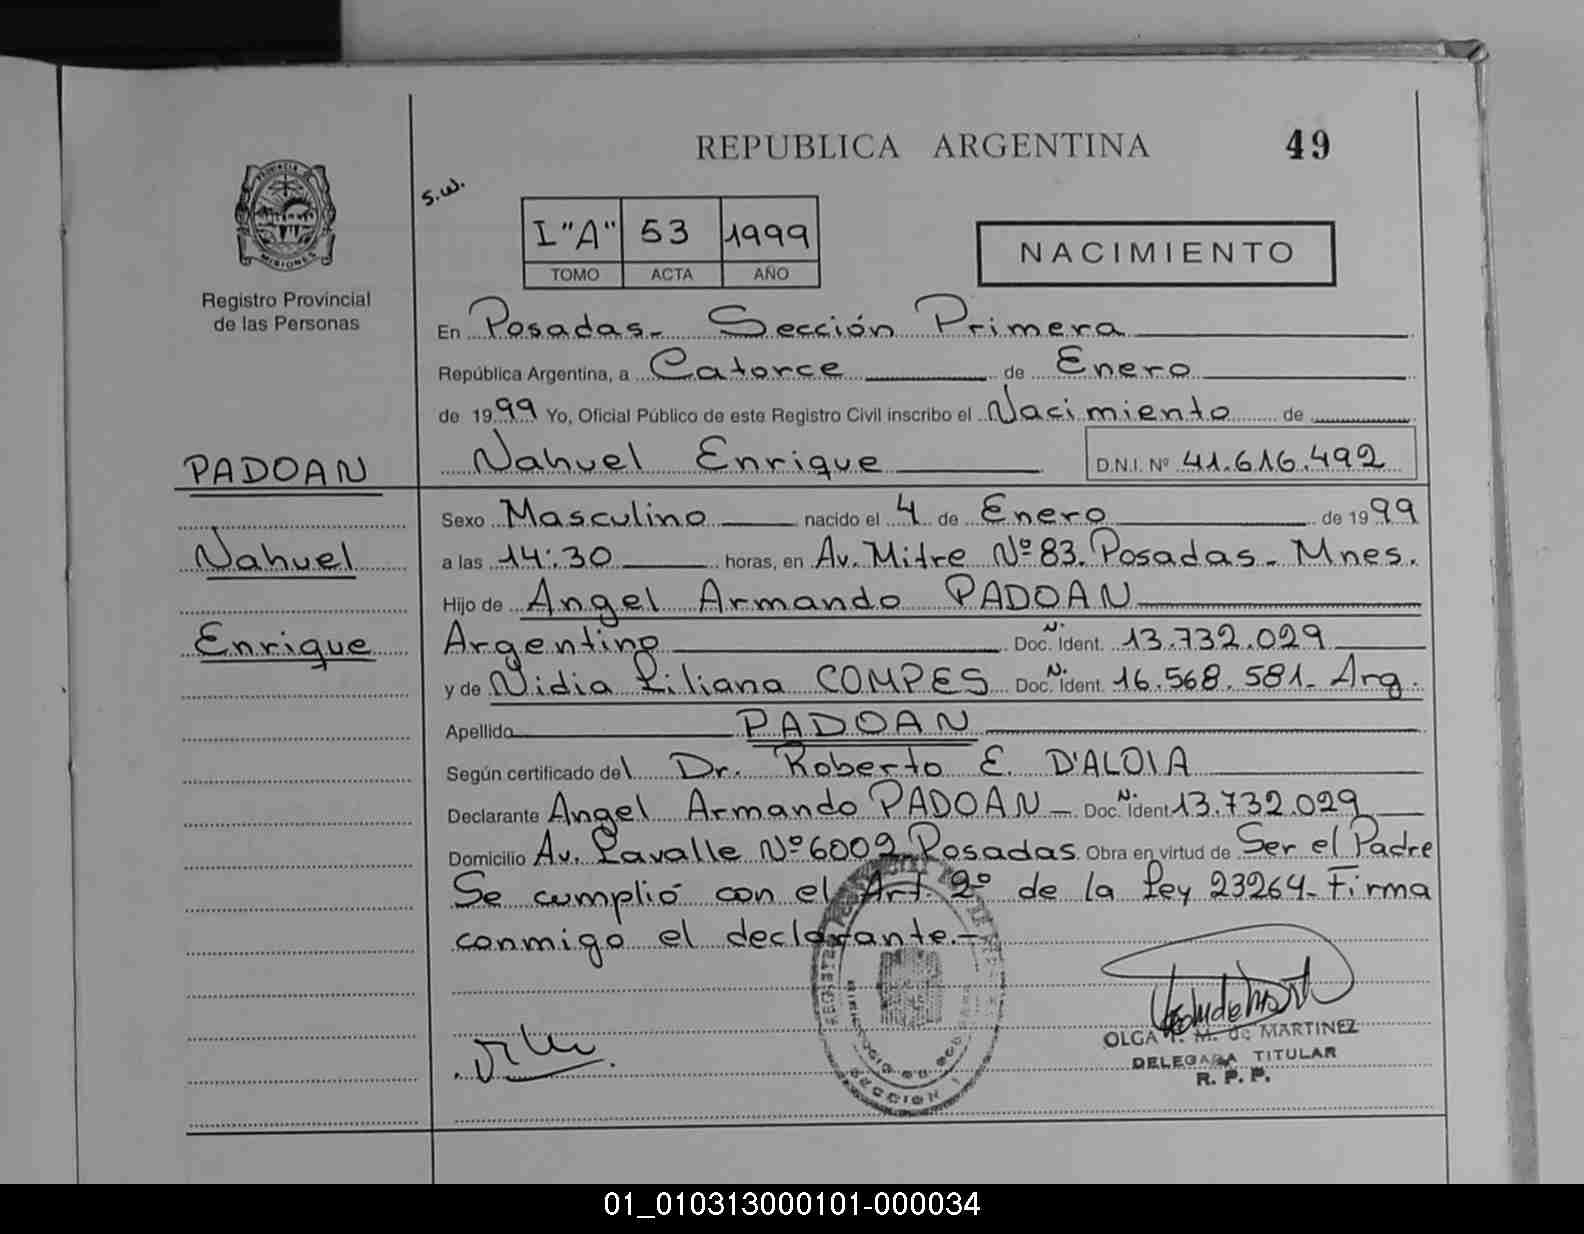 REPUBLICA ARGENTINA
49
PROVINCIA DE
MISIONES
Registro Provincial
de las Personas
s.w.
I "A" 53 1999
TOMO ACTA AÑO
NACIMIENTO
En Posadas- Sección Primera
República Argentina, a Catorce de Enero
de 1999 Yo, Oficial Público de este Registro Civil inscribo el Nacimiento de
Nahuel Enrique D.N.I. Nº 41.616.492
PADOAN
Nahuel
Enrique
Sexo Masculino nacido el 4 de Enero de 1999
a las 14:30 horas, en Av. Mitre Nº 83. Posadas- Mnes.
Hijo de Angel Armando PADOAN
Argentino Doc. N. Ident. 13.732.029
y de Nidia Liliana COMPES Doc. N. Ident. 16.568.581- Arg.
Apellido PADOAN
Según certificado del Dr. Roberto E. D'ALOIA
Declarante Angel Armando PADOAN - Doc. N. Ident. 13.732.029
Domicilio Av. Lavalle Nº 6002 Posadas. Obra en virtud de Ser el Padre
Se cumplió con el Art. 2º de la Ley 23264- Firma
conmigo el declarante.-
OLGA M. de MARTINEZ
DELEGADA TITULAR
R. P. P.
SECCION 1
01_010313000101-000034